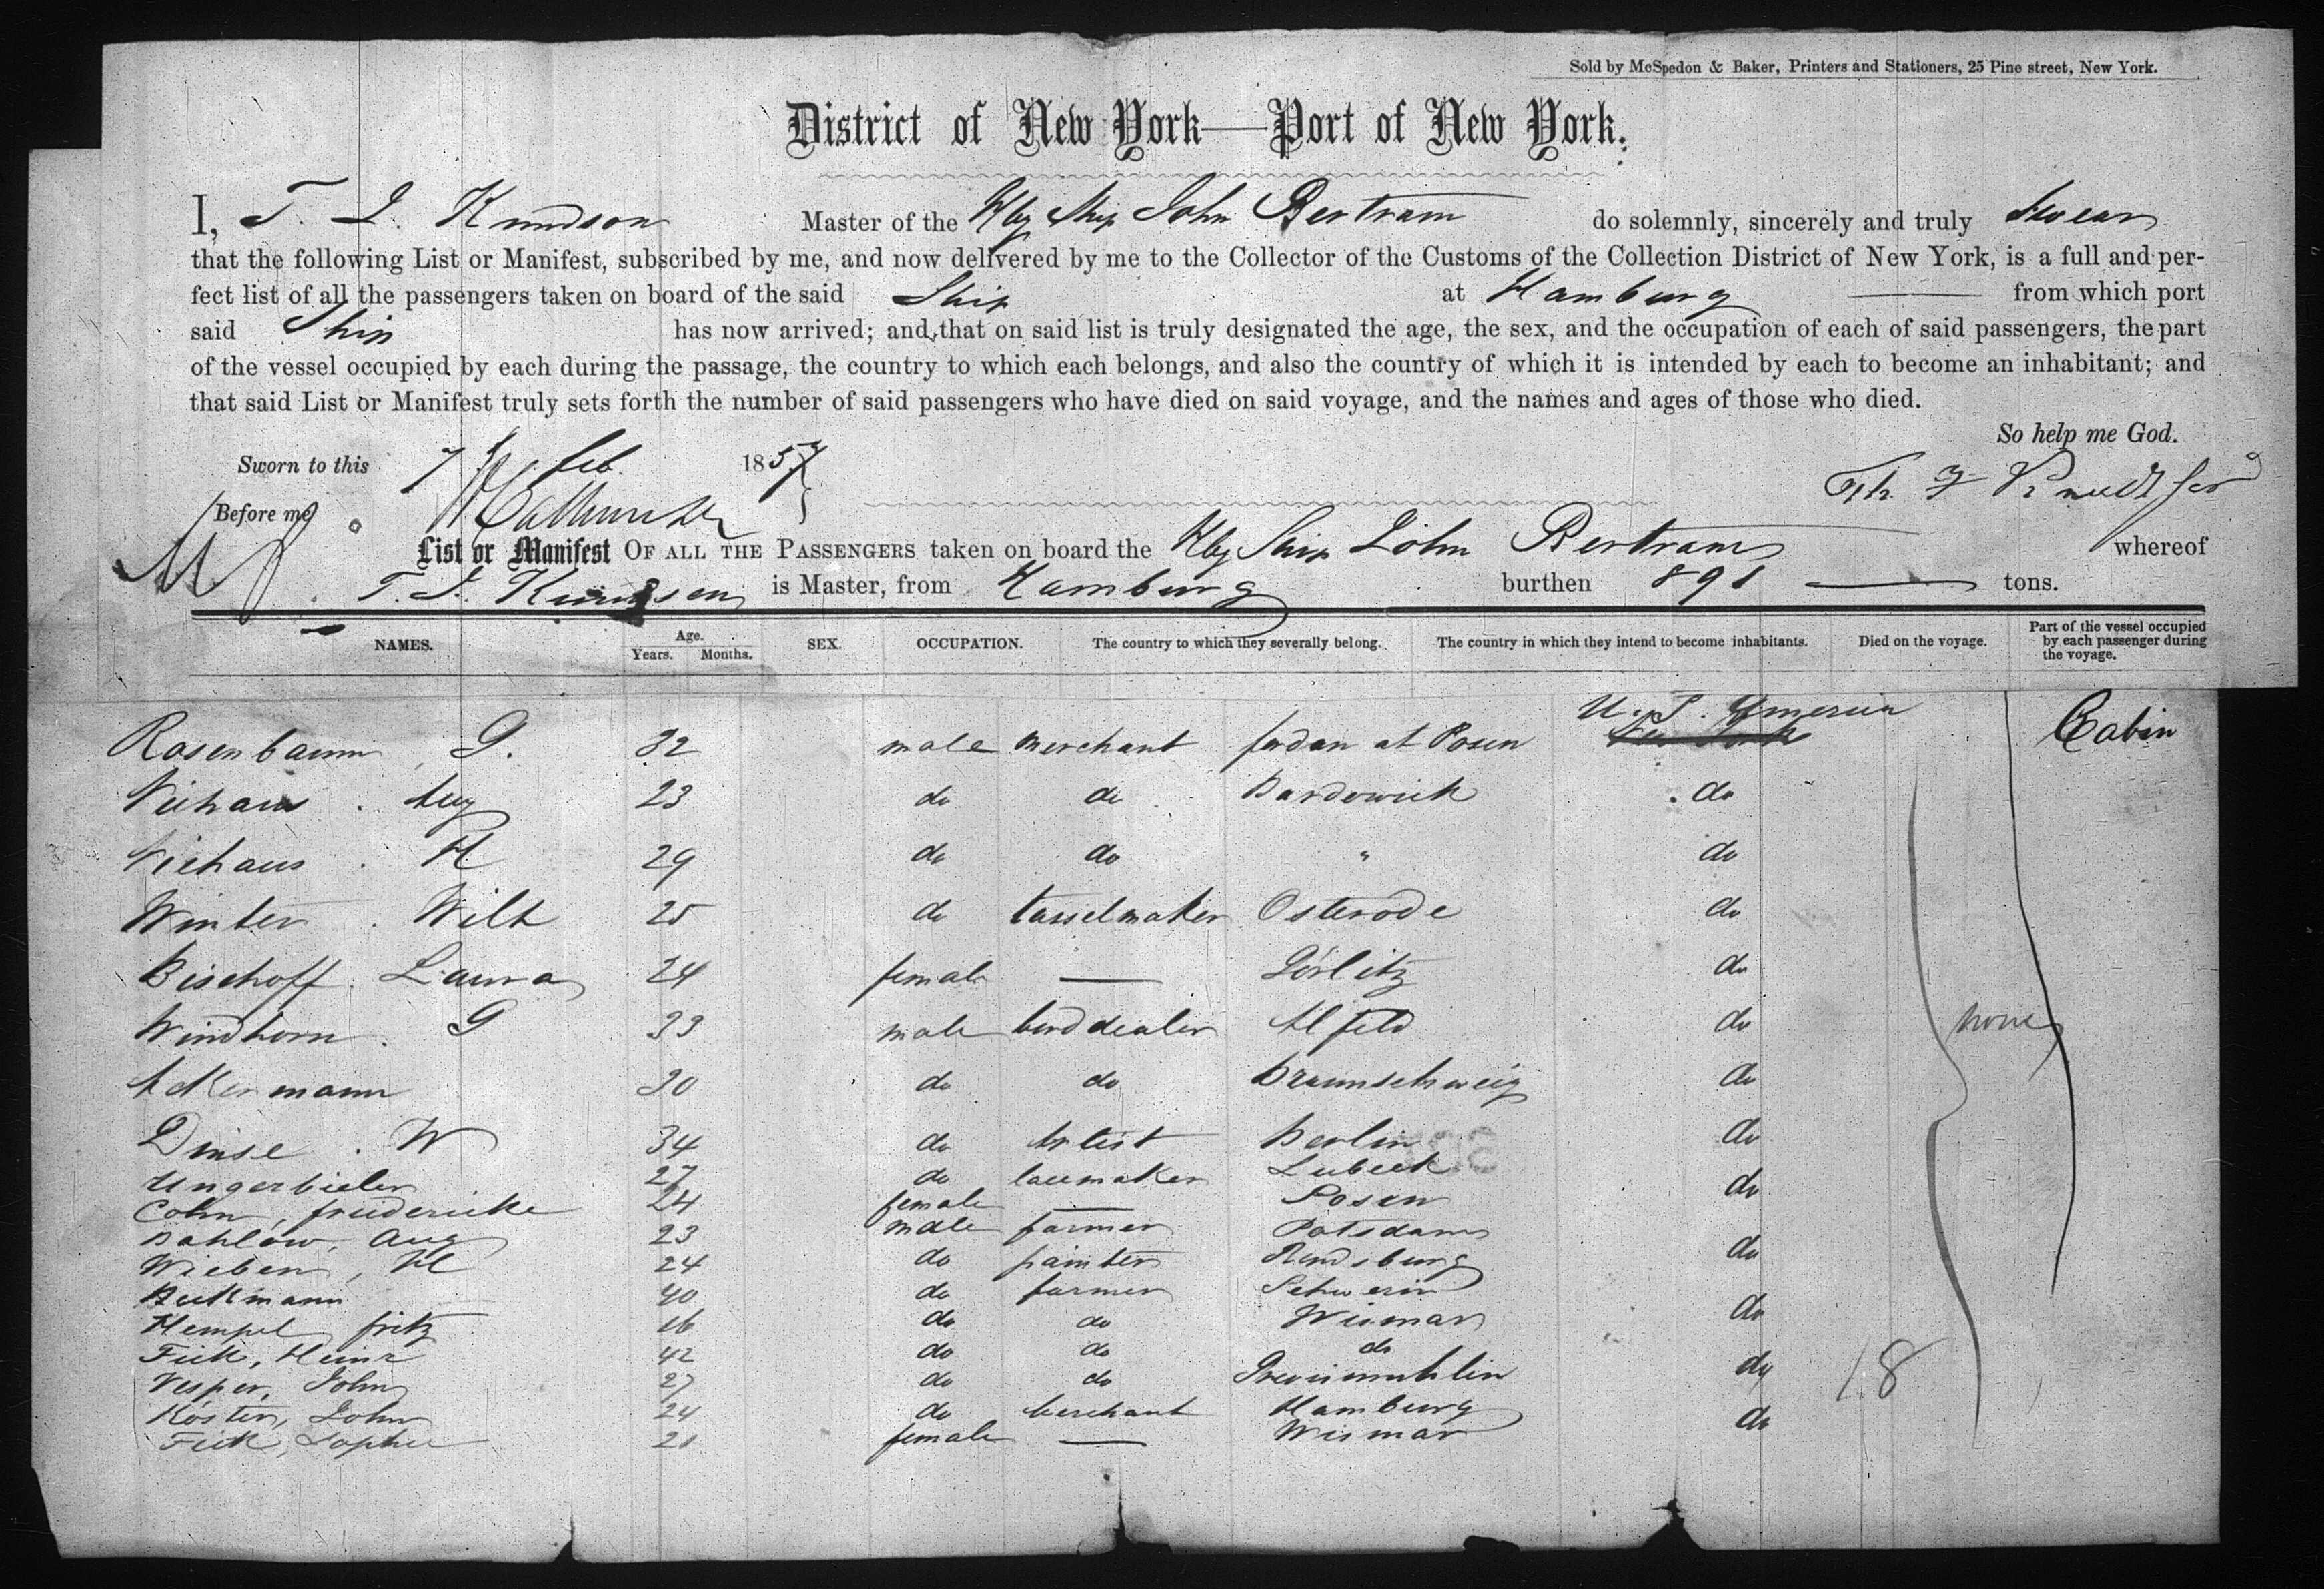 Sold by McSpedon & Baker, Printers and Stationers, 25 Pine street, New York.
District of New York—Port of New York.
I, T. J. Knudson Master of the Hbg Ship John Bertram do solemnly, sincerely and truly swear
that the following List or Manifest, subscribed by me, and now delivered by me to the Collector of the Customs of the Collection District of New York, is a full and per-
fect list of all the passengers taken on board of the said Ship at Hamburg from which port
said Ship has now arrived; and that on said list is truly designated the age, the sex, and the occupation of each of said passengers, the part
of the vessel occupied by each during the passage, the country to which each belongs, and also the country of which it is intended by each to become an inhabitant; and
that said List or Manifest truly sets forth the number of said passengers who have died on said voyage, and the names and ages of those who died.
So help me God.
Sworn to this 7 feb. 1857
Before me
List or Manifest OF ALL THE PASSENGERS taken on board the Hbg Ship John Bertram whereof
T. J. Knudsen is Master, from Hamburg burthen 891 tons.
NAMES. Age. Years. Months. SEX. OCCUPATION. The country to which they severally belong. The country in which they intend to become inhabitants. Died on the voyage. Part of the vessel occupied by each passenger during the voyage.
Rosenbaum, G. 32 male merchant Jordan at Posen U. S. America New York Cabin
Niehaus. Aug 23 do do Bardowick do
Niehaus. H 29 do do " do
Winter. Wilh 25 do tasselmaker Osterode do
Bischoff. Laura 24 female — Görlitz do
Windhorn. G 33 male bird dealer Alfeld do none
Ackermann 30 do do Braunschweig do
Dinse. W 34 do Artist Berlin do
Ungerbieler 27 do lacemaker Lubeck
Cohn, friedericke 24 female — Posen do
Dahlow, Aug 23 male farmer Potsdam
Wieben, H 24 do painter Rendsburg do
Beckmann 40 do farmer Schwerin
Hempel, fritz 26 do do Wismar do
Fick, Heinr 42 do do do
Vesper, John 27 do do Grevismuhlen do 18
Köster, John 24 do merchant Hamburg
Fick, Sophie 21 female — Wismar do